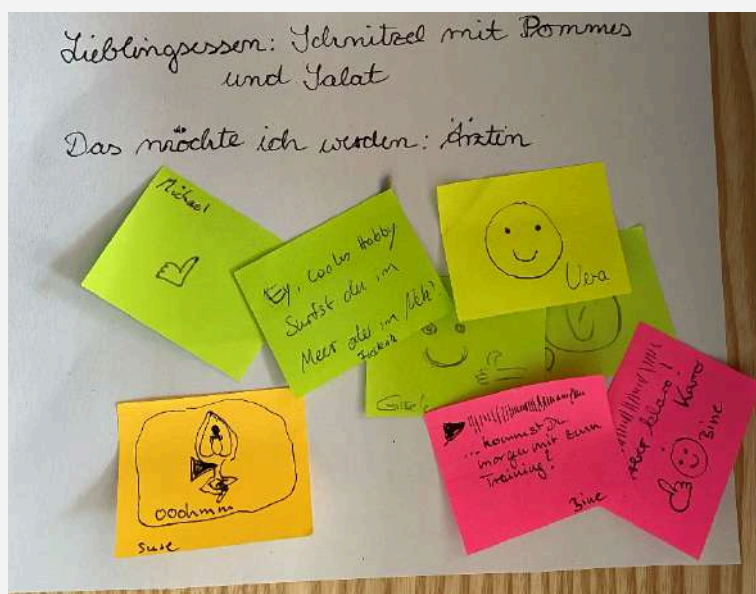 Lieblingsessen: Schnitzel mit Pommes
und Salat
Das möchte ich werden: Ärztin
Michael
Ey, cooles Hobby
Surfst du im
Meer oder im
Vera
ooohmm
Suse
... kommst Du
morgen mit zum
Training?
Bine
Aber klaro!
Karo
Bine